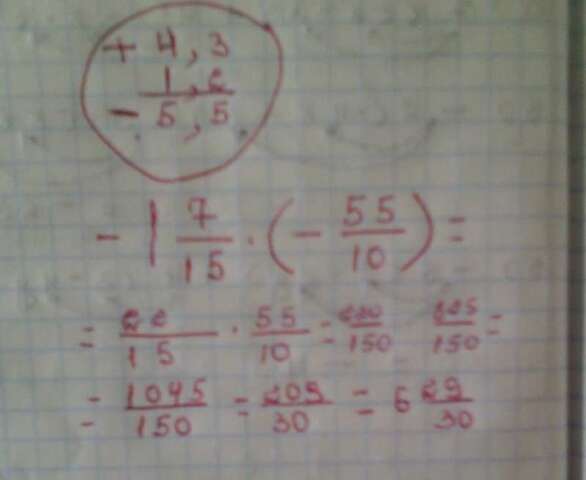 + 4,3
1,2
- 5,5
- 1 7/15 · (- 55/10) =
= 22/15 · 55/10 = /150 /150 =
= 1045/150 = 209/30 = 6 29/30